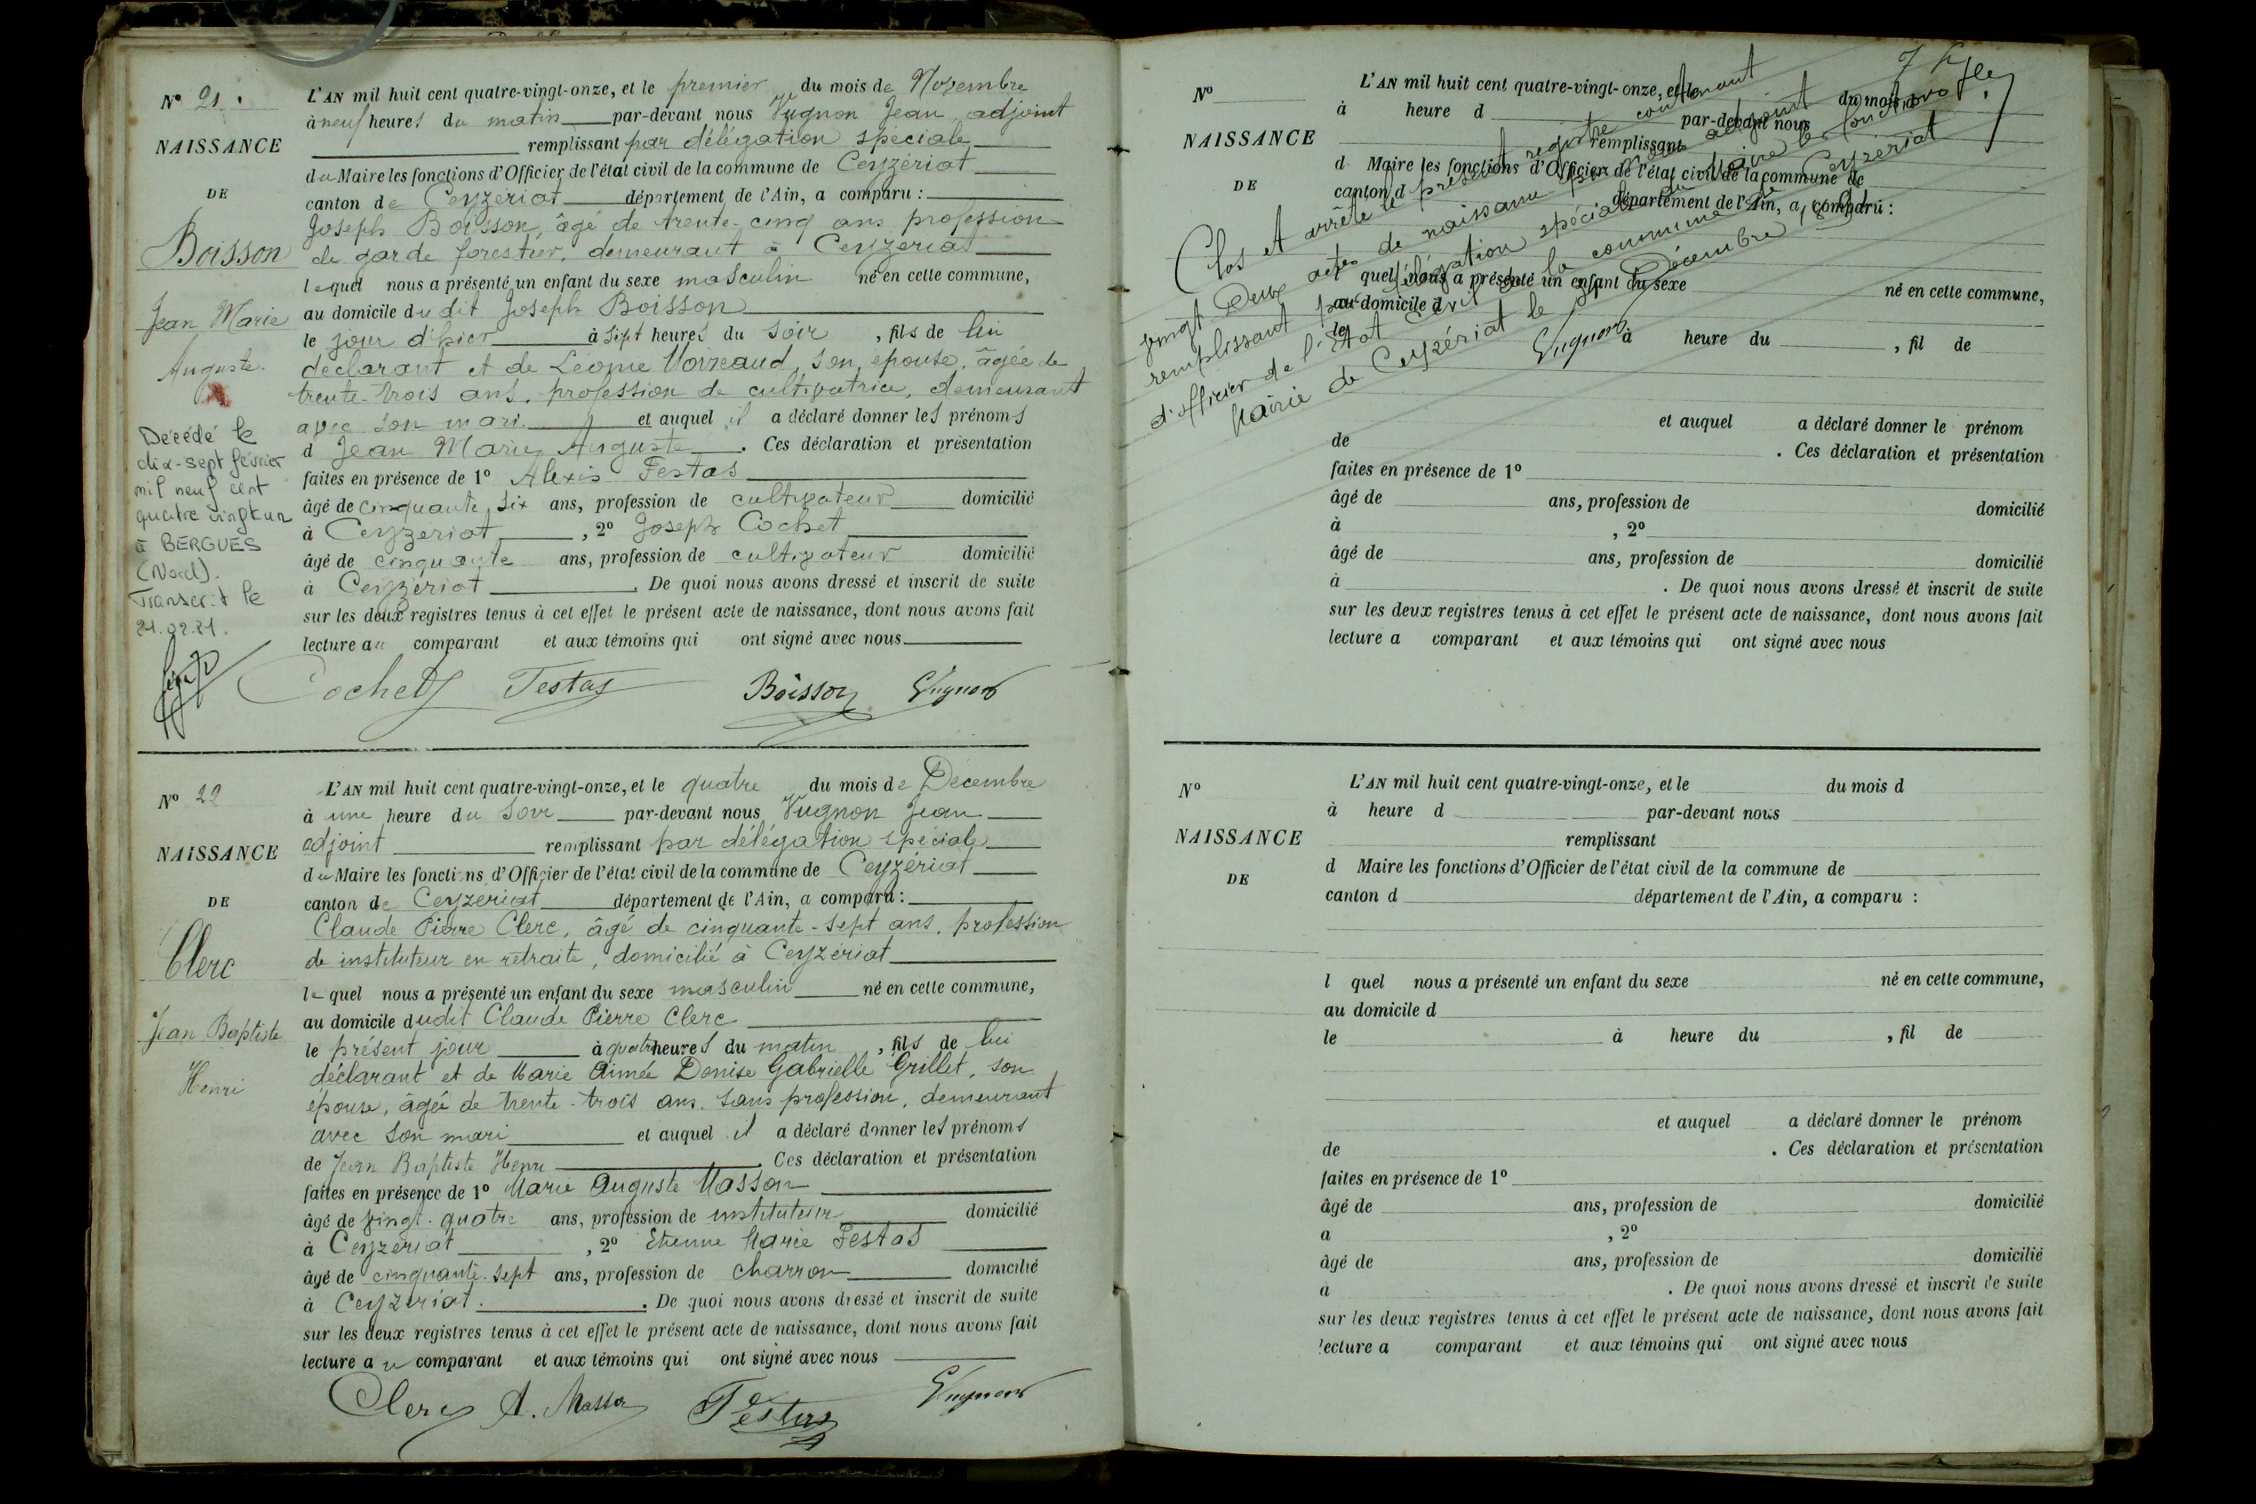 N° 21.
NAISSANCE
DE
Boisson
Jean Marie
Auguste.
Décédé le
dix-sept février
mil neuf cent
quatre vingt un
à BERGUES
(Nord).
Transcrit le
21.02.81.
L'AN mil huit cent quatre-vingt-onze, et le premier du mois de Novembre
à neuf heures du matin par-devant nous Vugnon Jean adjoint
remplissant par délégation spéciale
du Maire les fonctions d'Officier de l'état civil de la commune de Ceyzériat
canton de Ceyzériat département de l'Ain, a comparu :
Joseph Boisson, âgé de trente-cinq ans profession
de garde forestier, demeurant à Ceyzériat
lequel nous a présenté un enfant du sexe masculin né en cette commune,
au domicile du dit Joseph Boisson
le jour d'hier à sept heures du soir , fils de lui
déclarant et de Léonie son épouse, âgée de
trente-trois ans, profession de cultivatrice, demeurant
avec son mari et auquel il a déclaré donner les prénoms
d Jean Marie Auguste . Ces déclaration et présentation
faites en présence de 1° Alexis Testas
âgé de cinquante six ans, profession de cultivateur domicilié
à Ceyzériat , 2° Joseph Cochet
âgé de cinquante ans, profession de cultivateur domicilié
à Ceyzériat . De quoi nous avons dressé et inscrit de suite
sur les deux registres tenus à cet effet le présent acte de naissance, dont nous avons fait
lecture au comparant et aux témoins qui ont signé avec nous
Cochet Testas Boisson Vugnon
N° 22
NAISSANCE
DE
Clerc
Jean Baptiste
Henri
L'AN mil huit cent quatre-vingt-onze, et le quatre du mois de Décembre
à une heure du soir par-devant nous Vugnon Jean
adjoint remplissant par délégation spéciale
du Maire les fonctions d'Officier de l'état civil de la commune de Ceyzériat
canton de Ceyzériat département de l'Ain, a comparu :
Claude Pierre Clerc, âgé de cinquante-sept ans, profession
de instituteur en retraite, domicilié à Ceyzériat
lequel nous a présenté un enfant du sexe masculin né en cette commune,
au domicile dudit Claude Pierre Clerc
le présent jour à quatre heures du matin , fils de lui
déclarant et de Marie Aimée Denise Gabrielle Grillet, son
épouse, âgée de trente-trois ans, sans profession, demeurant
avec son mari et auquel il a déclaré donner les prénoms
de Jean Baptiste Henri . Ces déclaration et présentation
faites en présence de 1° Marie Auguste Masson
âgé de vingt-quatre ans, profession de instituteur domicilié
à Ceyzériat , 2° Etienne Marie Testas
âgé de cinquante-sept ans, profession de charron domicilié
à Ceyzériat . De quoi nous avons dressé et inscrit de suite
sur les deux registres tenus à cet effet le présent acte de naissance, dont nous avons fait
lecture au comparant et aux témoins qui ont signé avec nous
Clerc A. Masson Testas Vugnon
N°
NAISSANCE
DE
L'AN mil huit cent quatre-vingt-onze, et le du mois d
à heure d par-devant nous
remplissant
d Maire les fonctions d'Officier de l'état civil de la commune de
canton d département de l'Ain, a comparu :
l quel nous a présenté un enfant du sexe né en cette commune,
au domicile d
le à heure du , fil de
et auquel a déclaré donner le prénom
de . Ces déclaration et présentation
faites en présence de 1°
âgé de ans, profession de domicilié
à , 2°
âgé de ans, profession de domicilié
à . De quoi nous avons dressé et inscrit de suite
sur les deux registres tenus à cet effet le présent acte de naissance, dont nous avons fait
lecture a comparant et aux témoins qui ont signé avec nous
Clos et arrêté le présent registre contenant
vingt Deux actes de naissance par nous adjoint
remplissant par délégation spéciale du Maire les fonctions
d'officier de l'état civil de la commune de Ceyzériat
Mairie de Ceyzériat le 31 Décembre 1891
Vugnon
N°
NAISSANCE
DE
L'AN mil huit cent quatre-vingt-onze, et le du mois d
à heure d par-devant nous
remplissant
d Maire les fonctions d'Officier de l'état civil de la commune de
canton d département de l'Ain, a comparu :
l quel nous a présenté un enfant du sexe né en cette commune,
au domicile d
le à heure du , fil de
et auquel a déclaré donner le prénom
de . Ces déclaration et présentation
faites en présence de 1°
âgé de ans, profession de domicilié
a , 2°
âgé de ans, profession de domicilié
à . De quoi nous avons dressé et inscrit de suite
sur les deux registres tenus à cet effet le présent acte de naissance, dont nous avons fait
lecture a comparant et aux témoins qui ont signé avec nous